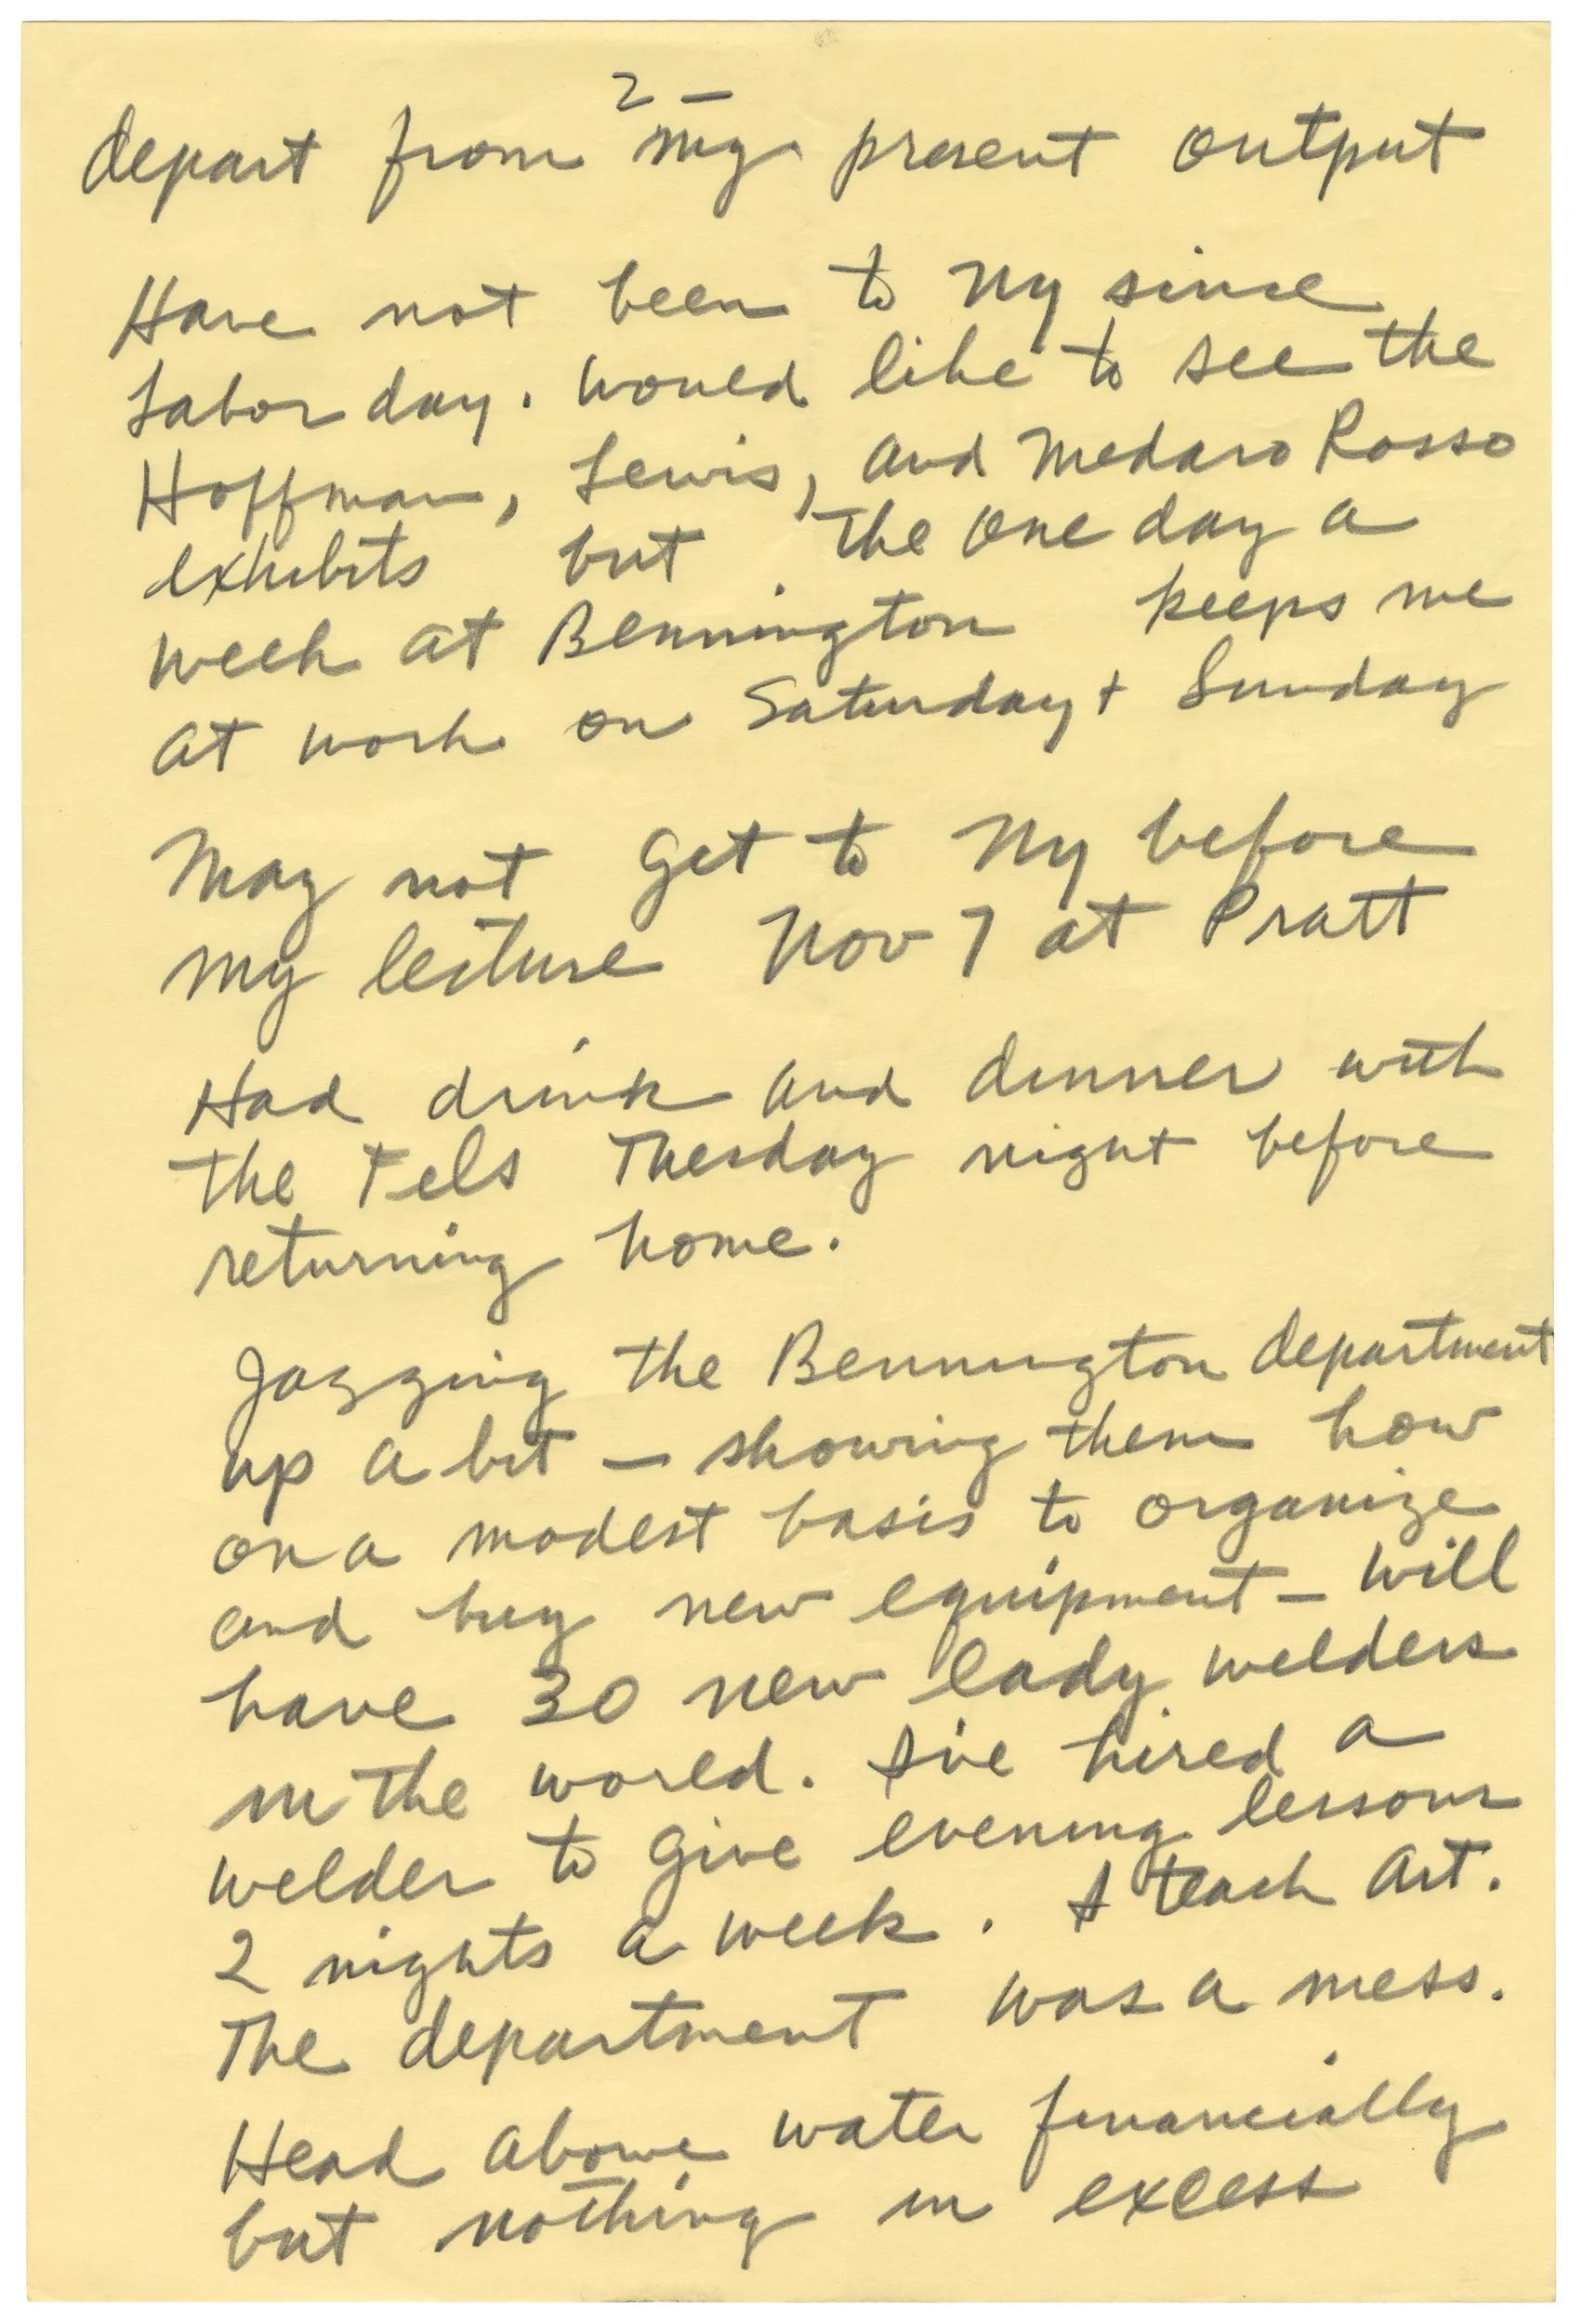 2 —
depart from my present output
Have not been to NY since
Labor day. Would like to see the
Hoffman, Lewis, and Medaro Rosso
exhibits but the one day a
week at Bennington keeps me
at work on Saturday + Sunday
May not get to NY before
my lecture Nov 7 at Pratt
Had drink and dinner with
the Fels Thesday night before
returning home.
Jazzing the Bennington department
up a bit — showing them how
on a modest basis to organize
and buy new equipment — Will
have 30 new lady welders
in the world. I've hired a
welder to give evening lessons
2 nights a week. I teach Art.
The department was a mess.
Head above water financially
but nothing in excess